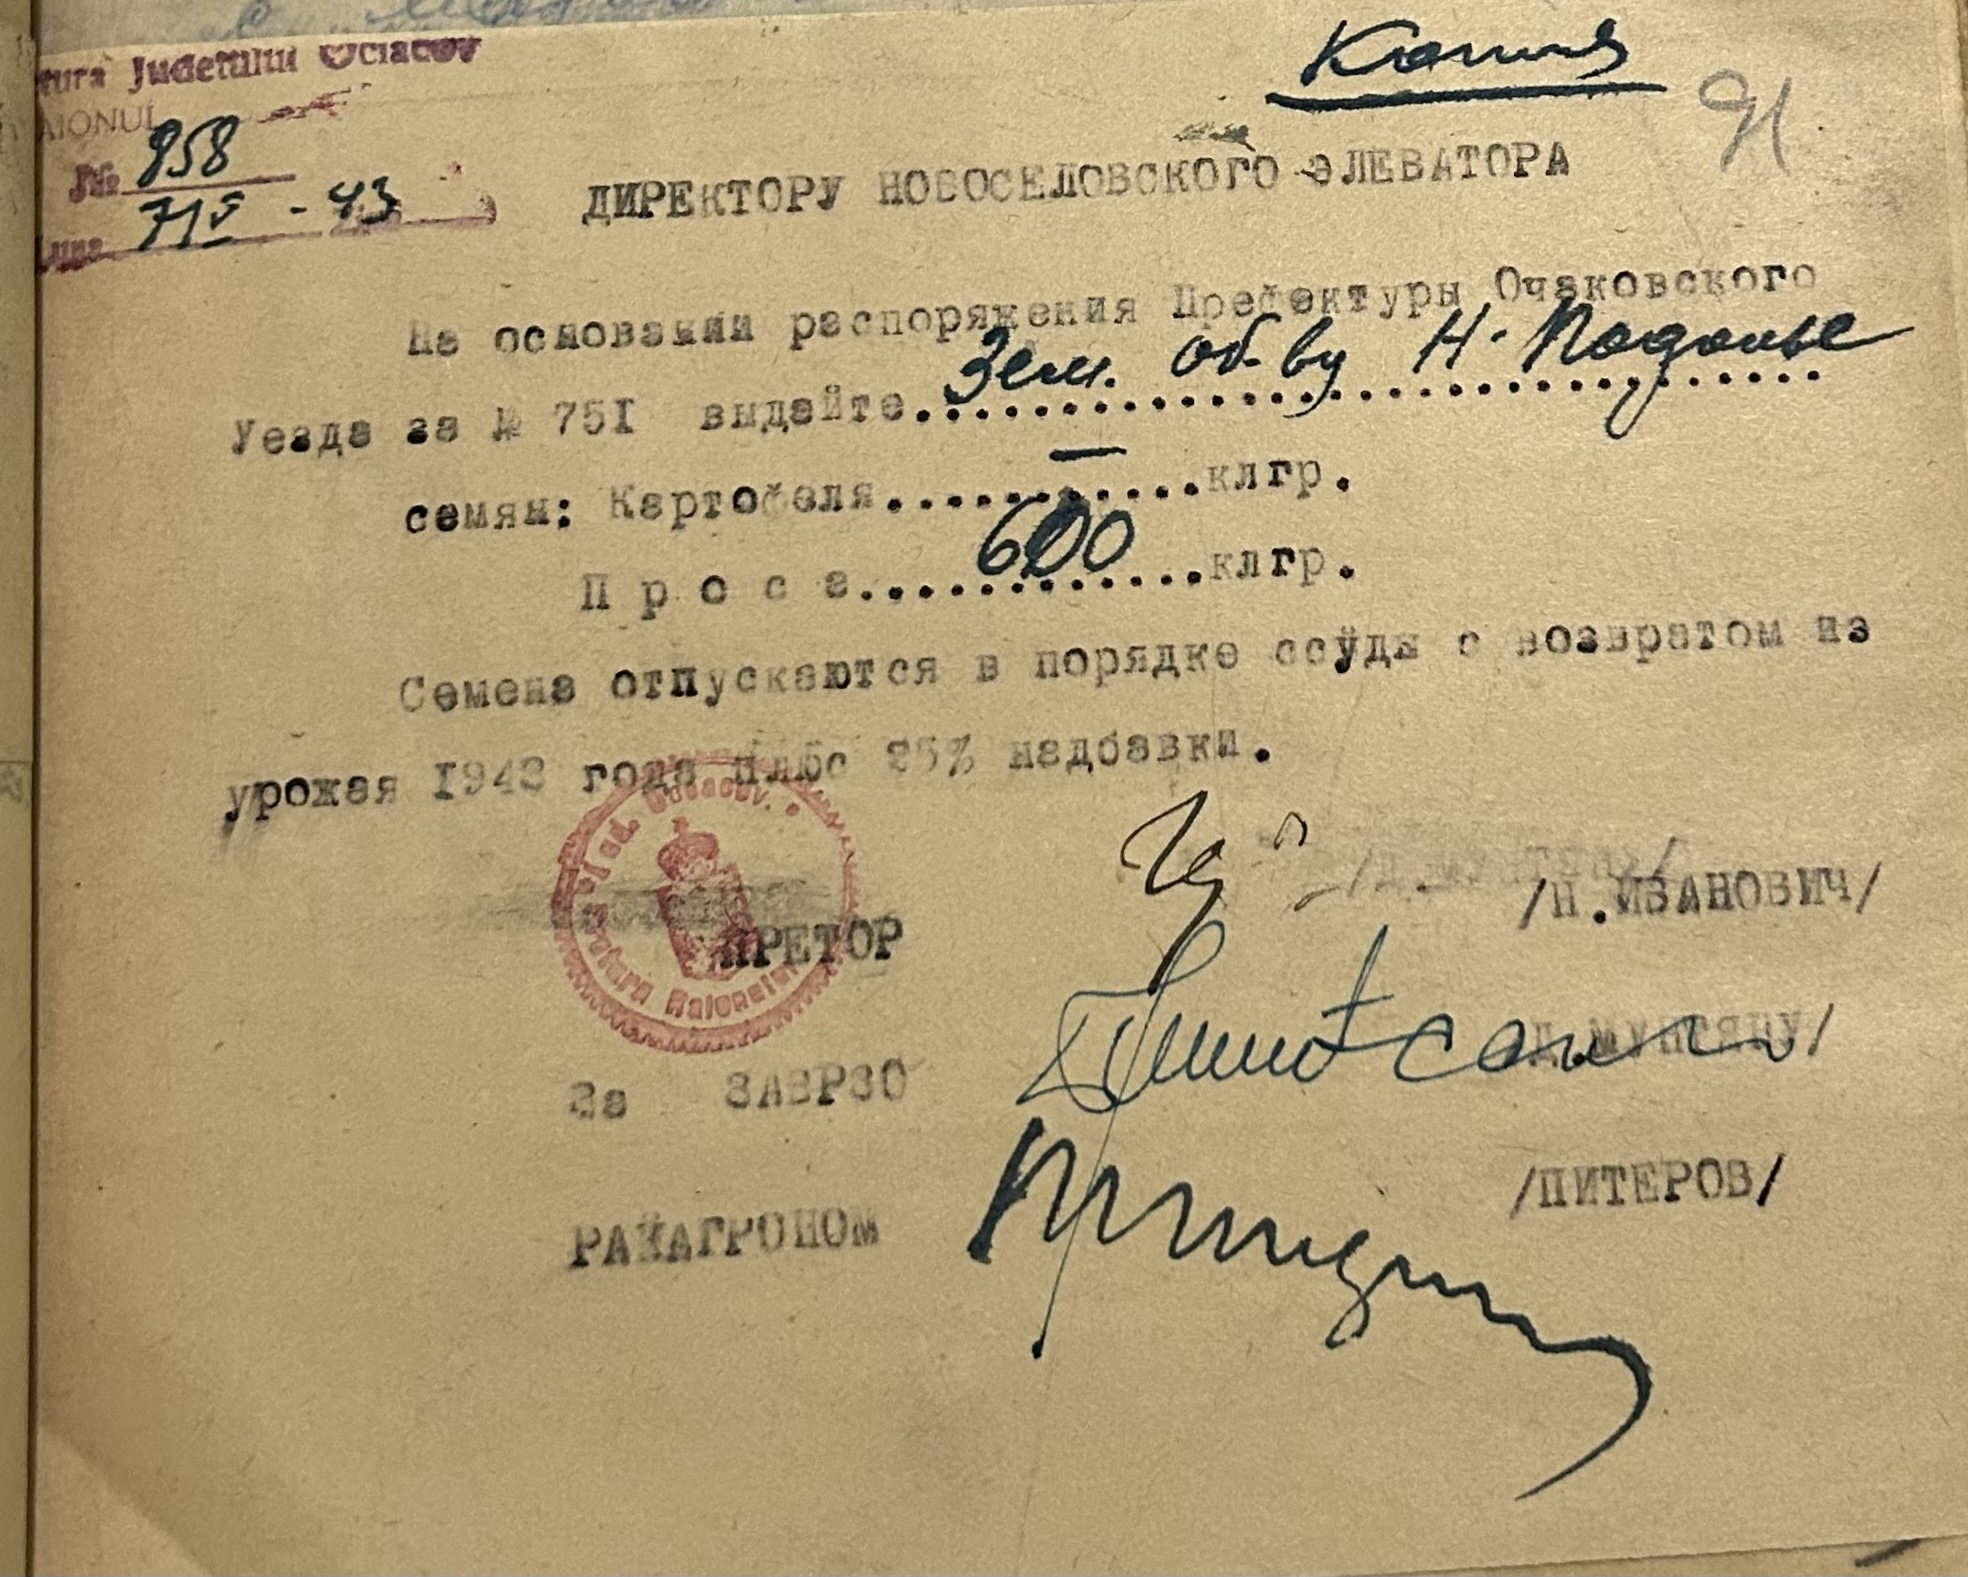 Копия
91
tura Judetului Ociacov
AIONUL
№ 958
Luna 7/V - 43
ДИРЕКТОРУ НОВОСЕЛОВСКОГО ЭЛЕВАТОРА
На основании распоряжения Префектуры Очаковского
Уезда за № 75I выдайте..Зем. об-ву Н-Подолье
семян: Картофеля.....—.....клгр.
П р о с а.....600.....клгр.
Семена отпускаются в порядке ссуды с возвратом из
урожая I943 года плюс 25% надбавки.
Jud. Ociacov. Pretura Raionului
ПРЕТОР /Н.ИВАНОВИЧ/
За ЗАВРЗО Д.МУНТЯНУ/
РАЙАГРОНОМ /ПИТЕРОВ/